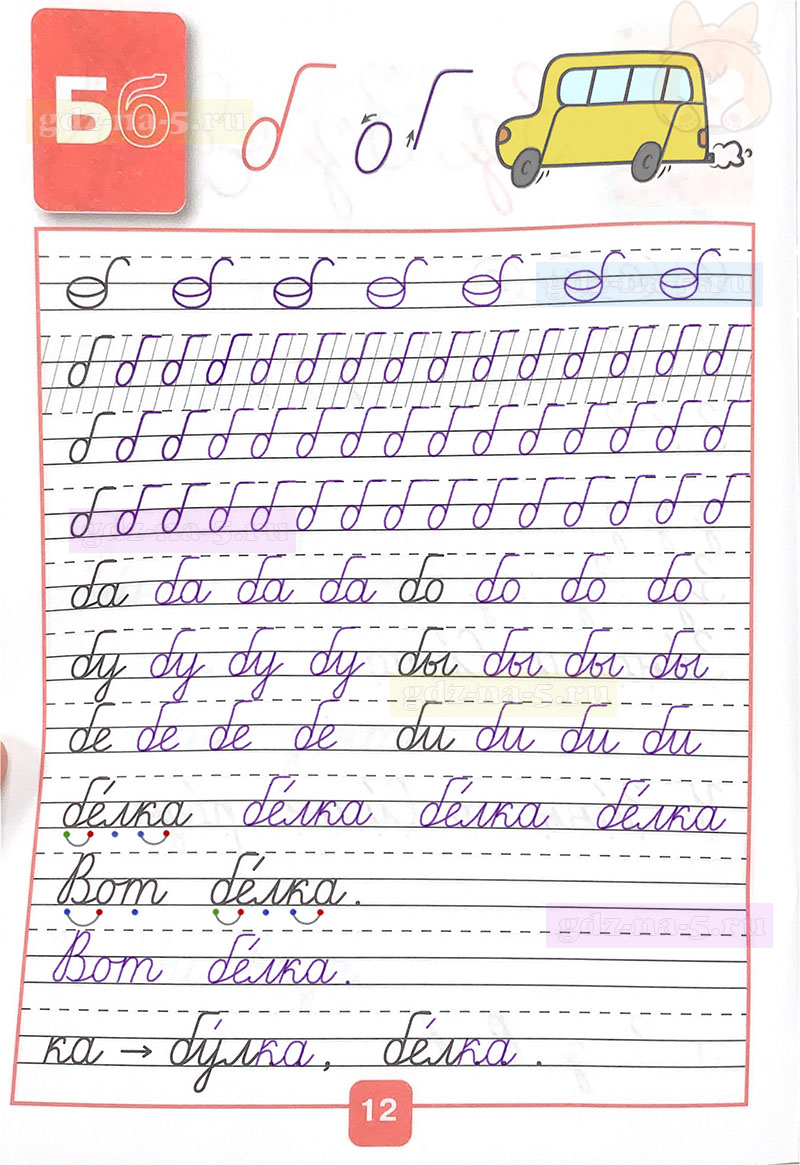 Бб б
gdz-na-5.ru
gdz-na-5.ru
б б б б б б б
б б б б б б б б б б б б б б б
б б б б б б б б б б б б б б б
б б б б б б б б б б б б б б б
gdz-na-5.ru
ба ба ба ба бо бо бо бо
бу бу бу бу бы бы бы бы
gdz-na-5.ru
бе бе бе бе би би би би
бе́лка бе́лка бе́лка бе́лка
Вот бе́лка.
gdz-na-5.ru
Вот бе́лка.
ка → бу́лка, бе́лка.
12